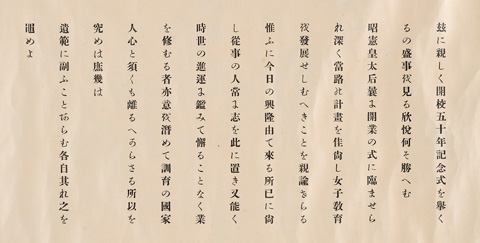 茲に親しく開校五十年記念式を擧く
るの盛事を見る欣悅何そ勝へむ
昭憲皇太后曩よ開業の式に臨ませら
れ深く當路の計畫を佳尙し女子敎育
を發展せしむへきことを親諭さらる
惟ふに今日の興隆由て來る所已に尙
し從事の人當よ志を此に置き又能く
時世の進運よ鑑みて懈ることなく業
を修むる者亦意を潛めて訓育の國家
人心と須くも離るへからさる所以を
究めは庶幾は
遺範に副ふことあらむ各自其れ之を
勗めよ